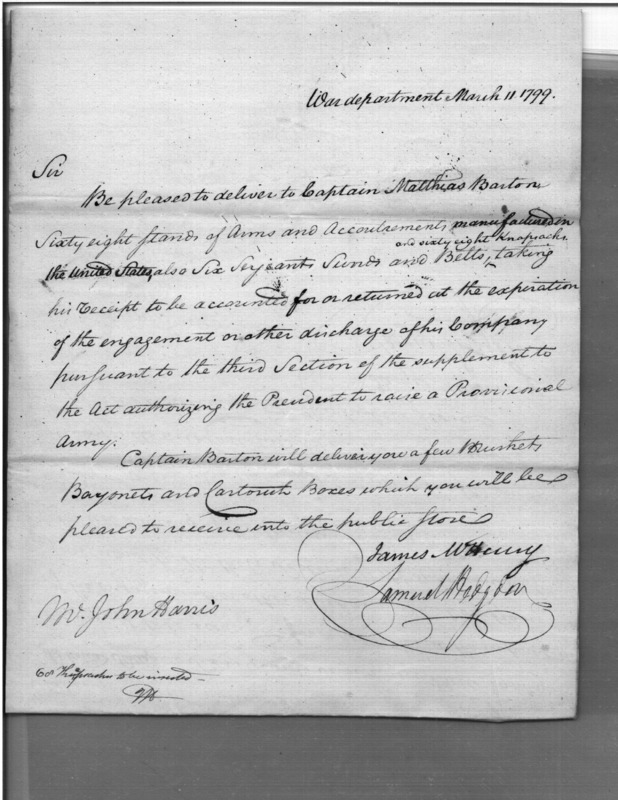 War department March 11 1799.
Sir
Be pleased to deliver to Captain Matthias Barton
Sixty eight Stands of Arms and Accoutrements, manufactured in
and sixty eight Knapsacks
the United States, also Six Serjeants Swords and Belts, taking
his receipt to be accounted for or returned at the expiration
of the engagement or other discharge of his Company
pursuant to the third Section of the supplement to
the Act authorizing the President to raise a Provisional
Army.
Captain Barton will deliver you a few Muskets
Bayonets and Cartouch Boxes which you will be
pleased to receive into the public Store
James McHenry
Samuel Hodgdon
Mr. John Harris
68 Knapsacks to be inserted